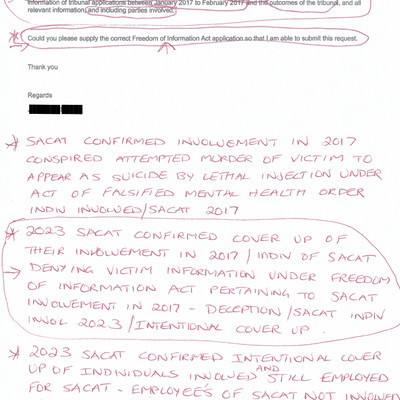 information of tribunal applications between January 2017 to February 2017 and the outcomes of the tribunal, and all
relevant information, and including parties involved.
* Could you please supply the correct Freedom of Information Act application so that I am able to submit this request.
Thank you
Regards
* SACAT CONFIRMED INVOLVEMENT IN 2017
CONSPIRED ATTEMPTED MURDER OF VICTIM TO
APPEAR AS SUICIDE BY LETHAL INJECTION UNDER
ACT OF FALSIFIED MENTAL HEALTH ORDER
INDIV INVOLVED/SACAT 2017
* 2023 SACAT CONFIRMED COVER UP OF
THEIR INVOLVEMENT IN 2017 / INDIV OF SACAT
→ DENYING VICTIM INFORMATION UNDER FREEDOM
OF INFORMATION ACT PERTAINING TO SACAT
INVOLVEMENT IN 2017 - DECEPTION/SACAT INDIV
INVOL 2023/INTENTIONAL COVER UP.
* 2023 SACAT CONFIRMED INTENTIONAL COVER
UP OF INDIVIDUALS INVOLVED AND STILL EMPLOYED
FOR SACAT - EMPLOYEE'S OF SACAT NOT INVOLVED